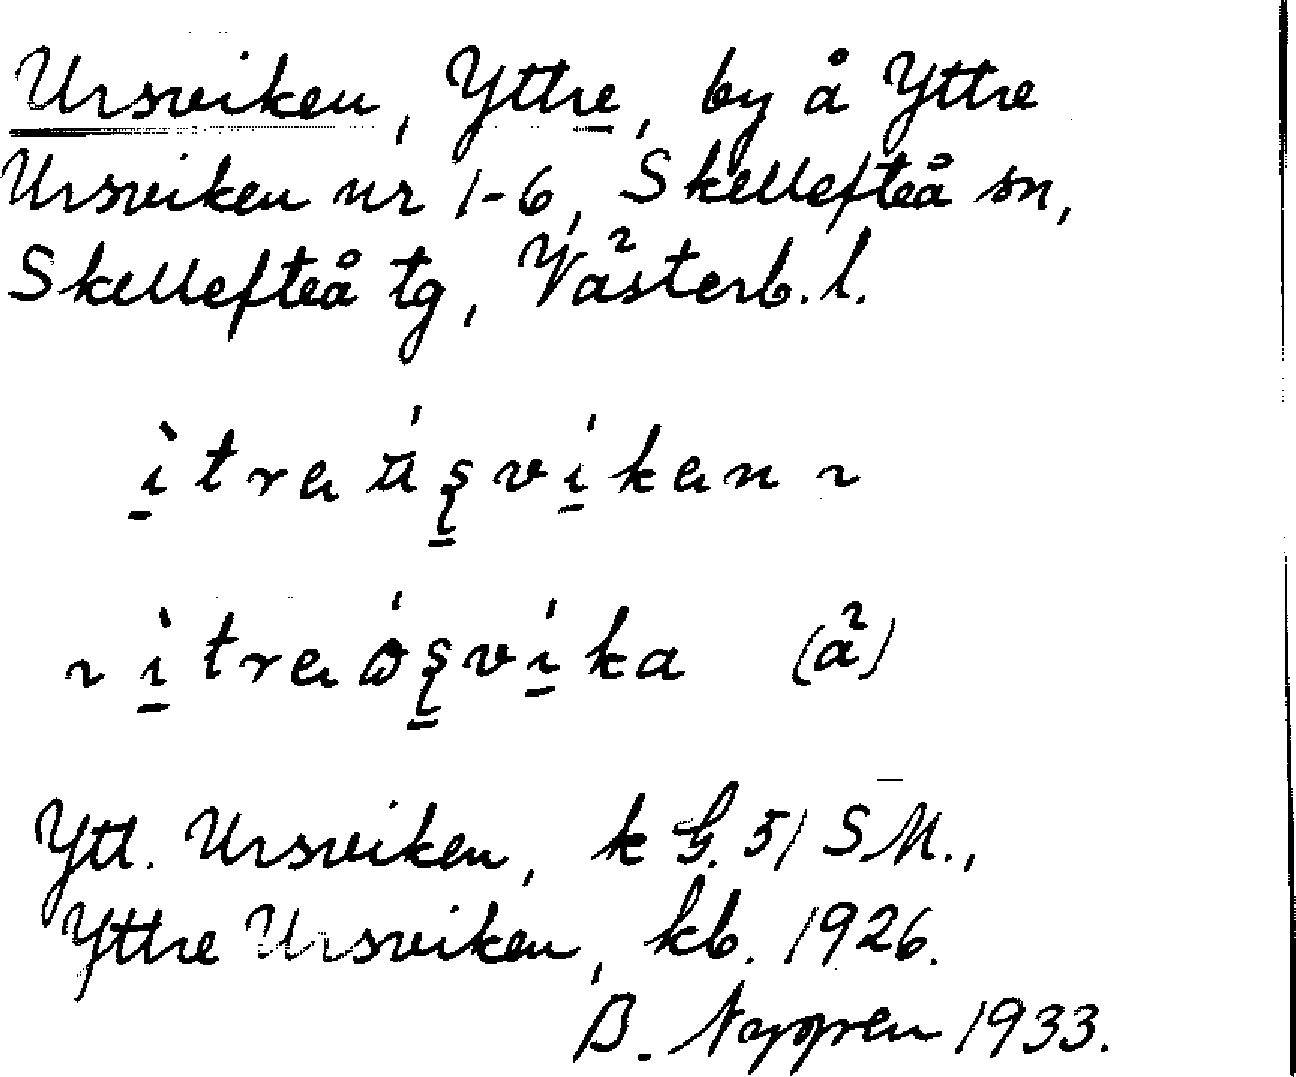 Ursviken, Yttre, by å Yttre
Ursviken nr 1-6, Skellefteå sn,
Skellefteå tg, Västerb. l.
(ä)
Ytt. Ursviken, k G. 51 S M.,
Yttre Ursviken, kb. 1926.
B. 1933.